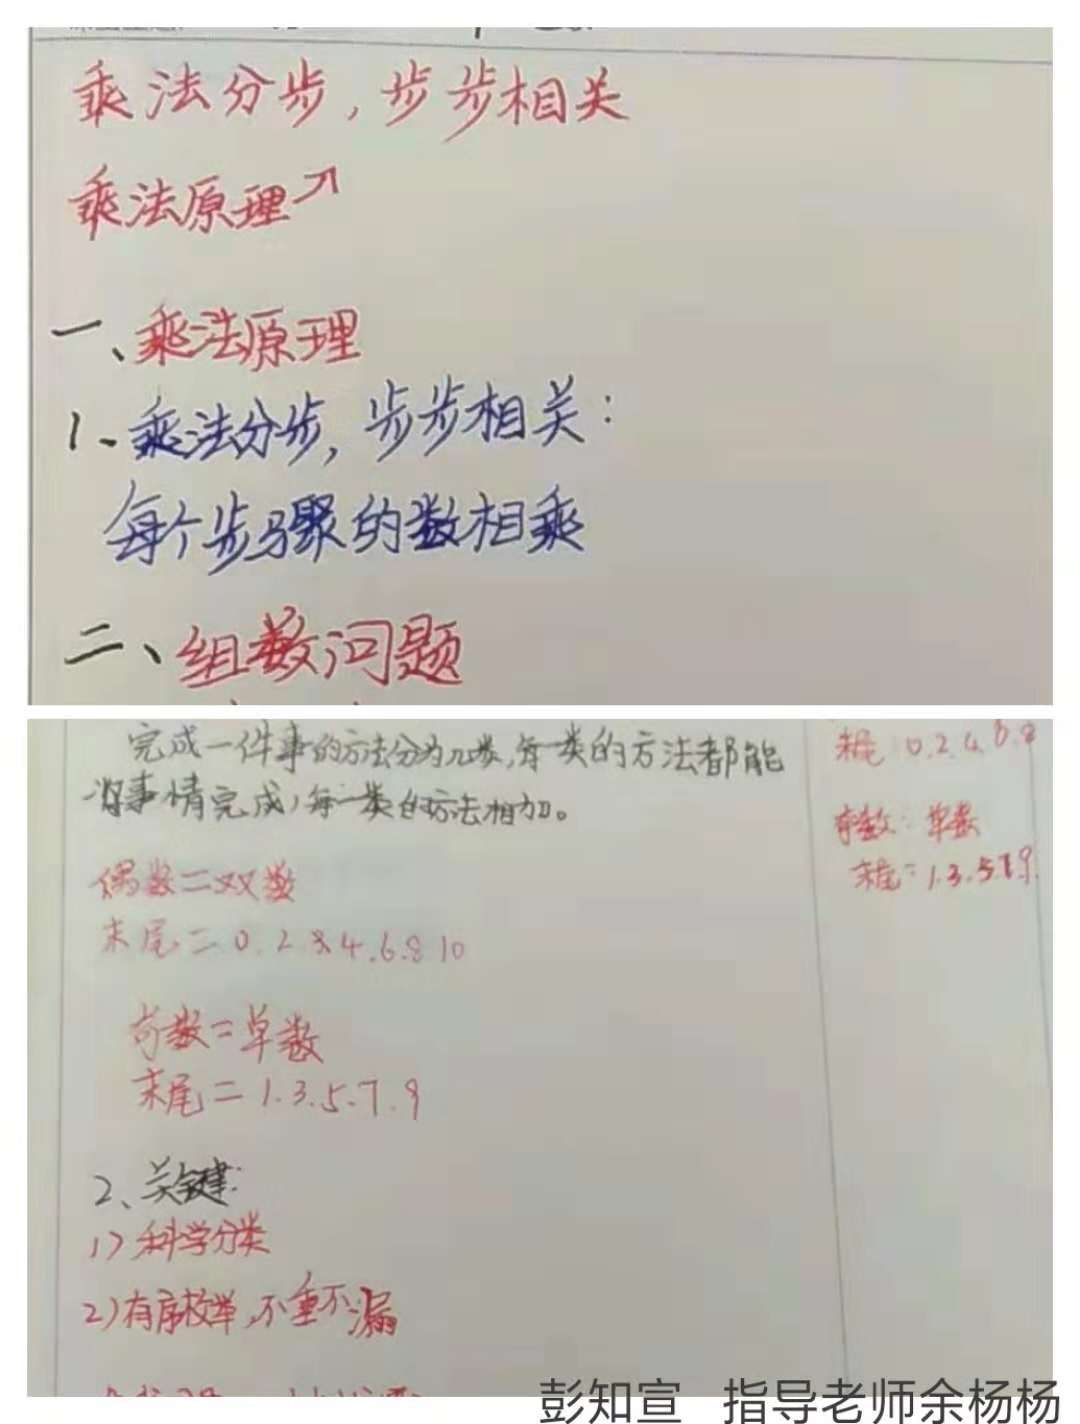 乘法分步，步步相关
乘法原理↗
一、乘法原理
1、乘法分步，步步相关：
每个步骤的数相乘
二、组数问题
完成一件事的方法分为几类，每一类的方法都能
事情完成，每一类的方法相加。
偶数=双数
末尾=0.2 4.6.8 10
奇数=单数
末尾=1.3.5.7.9
2、关键：
1)科学分类
2)有序枚举，不重不漏
末尾：0.2.4.6.8
奇数：单数
末尾=1.3.5.7.9.
彭知宣 指导老师余杨杨